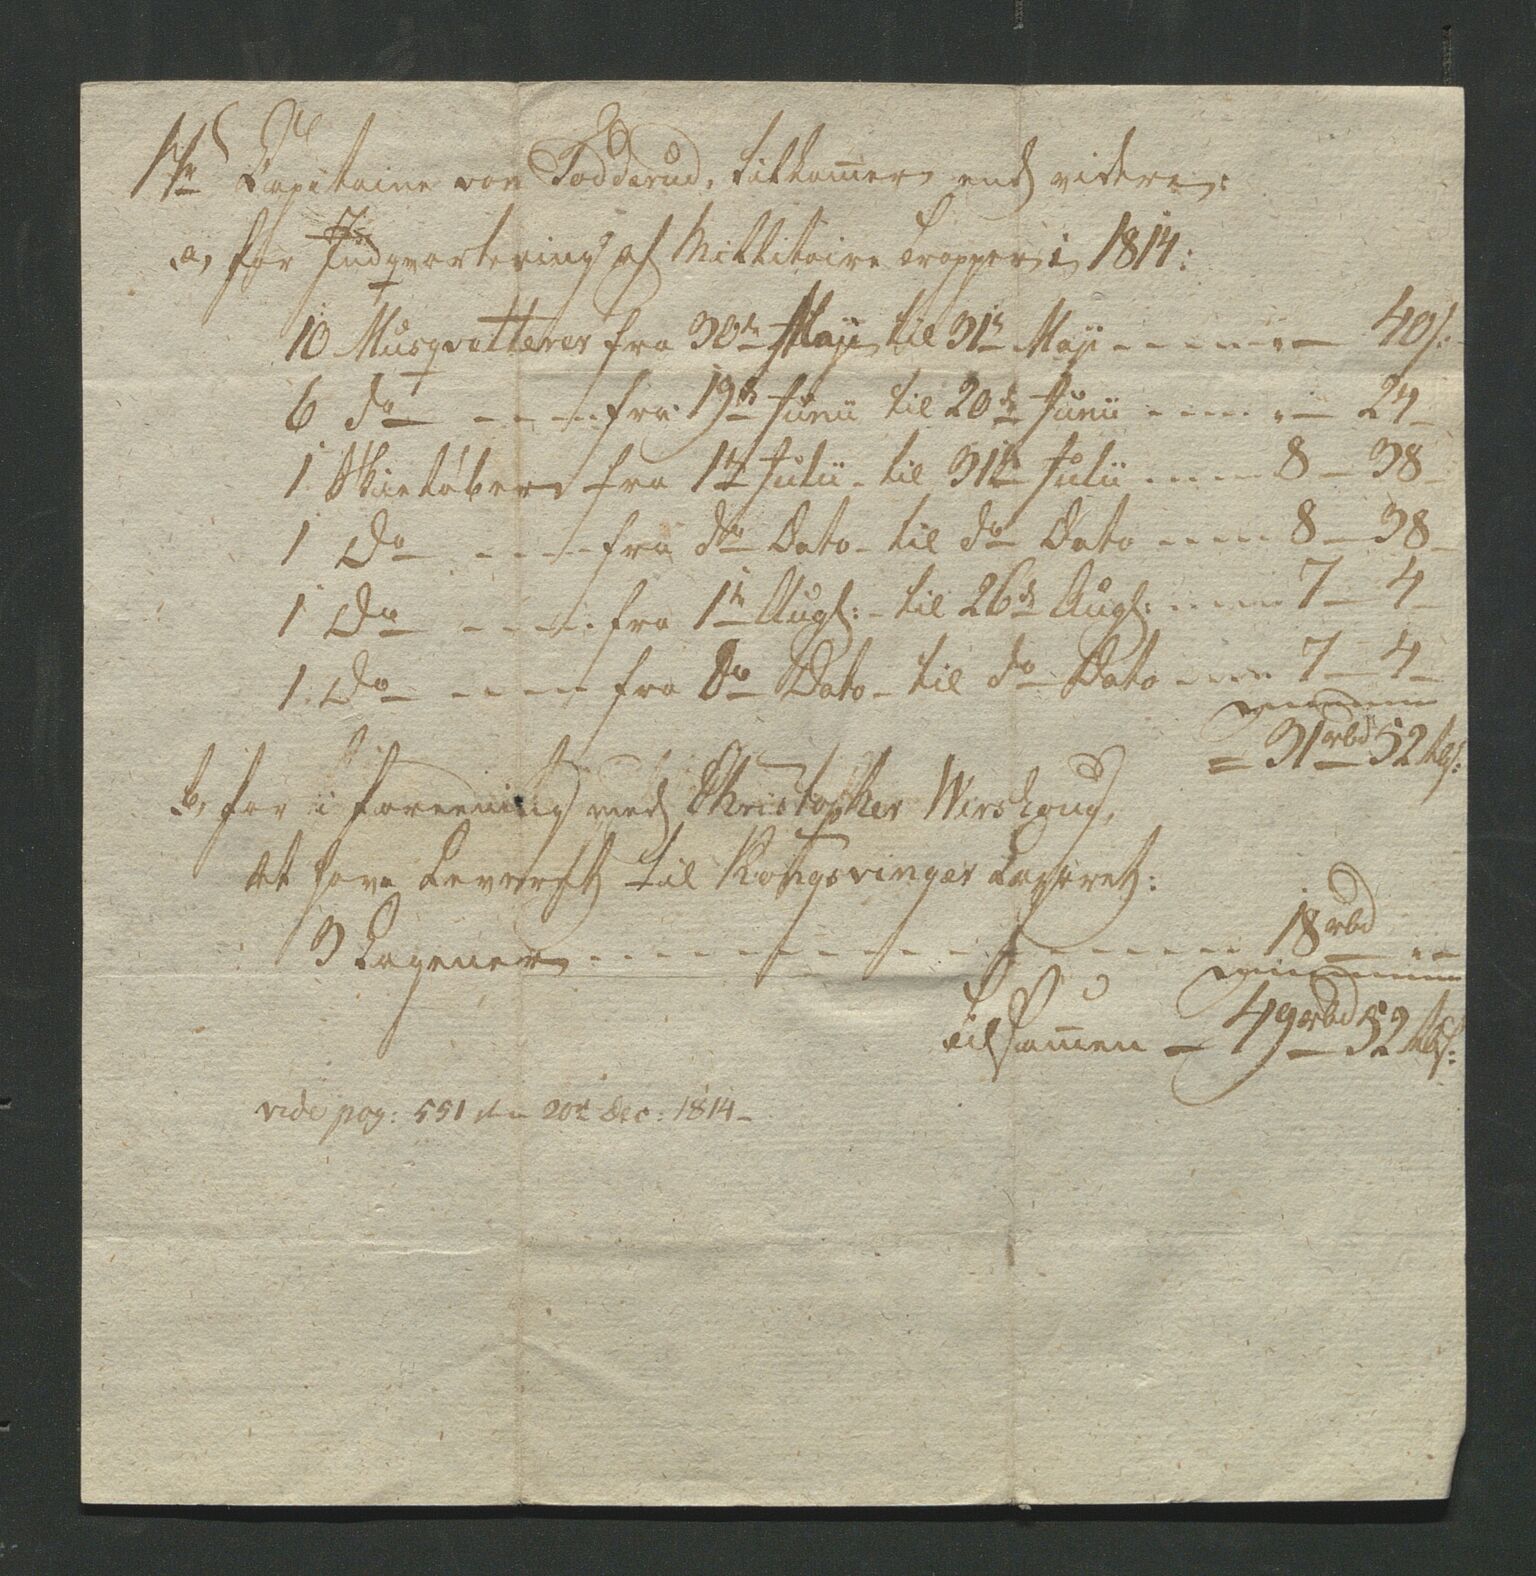 Hr Capitaine von Todderud, tilkom̅er endh videre:
a, for Indqvartering af Millitaire Tropper i 1814:
10 Musqvetterer fra 30te Maji til 31te Maji - - - - - 40s:
6 do - - - - fra 19de Junii til 20de Junii - - - - - 24 -
1 Skieløber fra 1te Julii - til 31te Julii - - - - 8 - 38 -
1 Do - - - - fra do Dato - til do Dato - - - - 8 - 38 -
1 Do - - - - fra 1te Augs: - til 26de Augs: - - - - 7 - 4 -
1 Do - - - - fra Do Dato - til do Dato - - - - 7 - 4 -
= 31rbd 52 rbs:
b, for i foreening med Christopher Wershoug,
at have Leverth til Kongsvinger Lazareth:
3 Lagener - - - - - - - - - - - - 18rbd - -
Tilsam̅en - 49rbd 52 rbs:
vide pag: 551 den 20de Dec: 1814 -